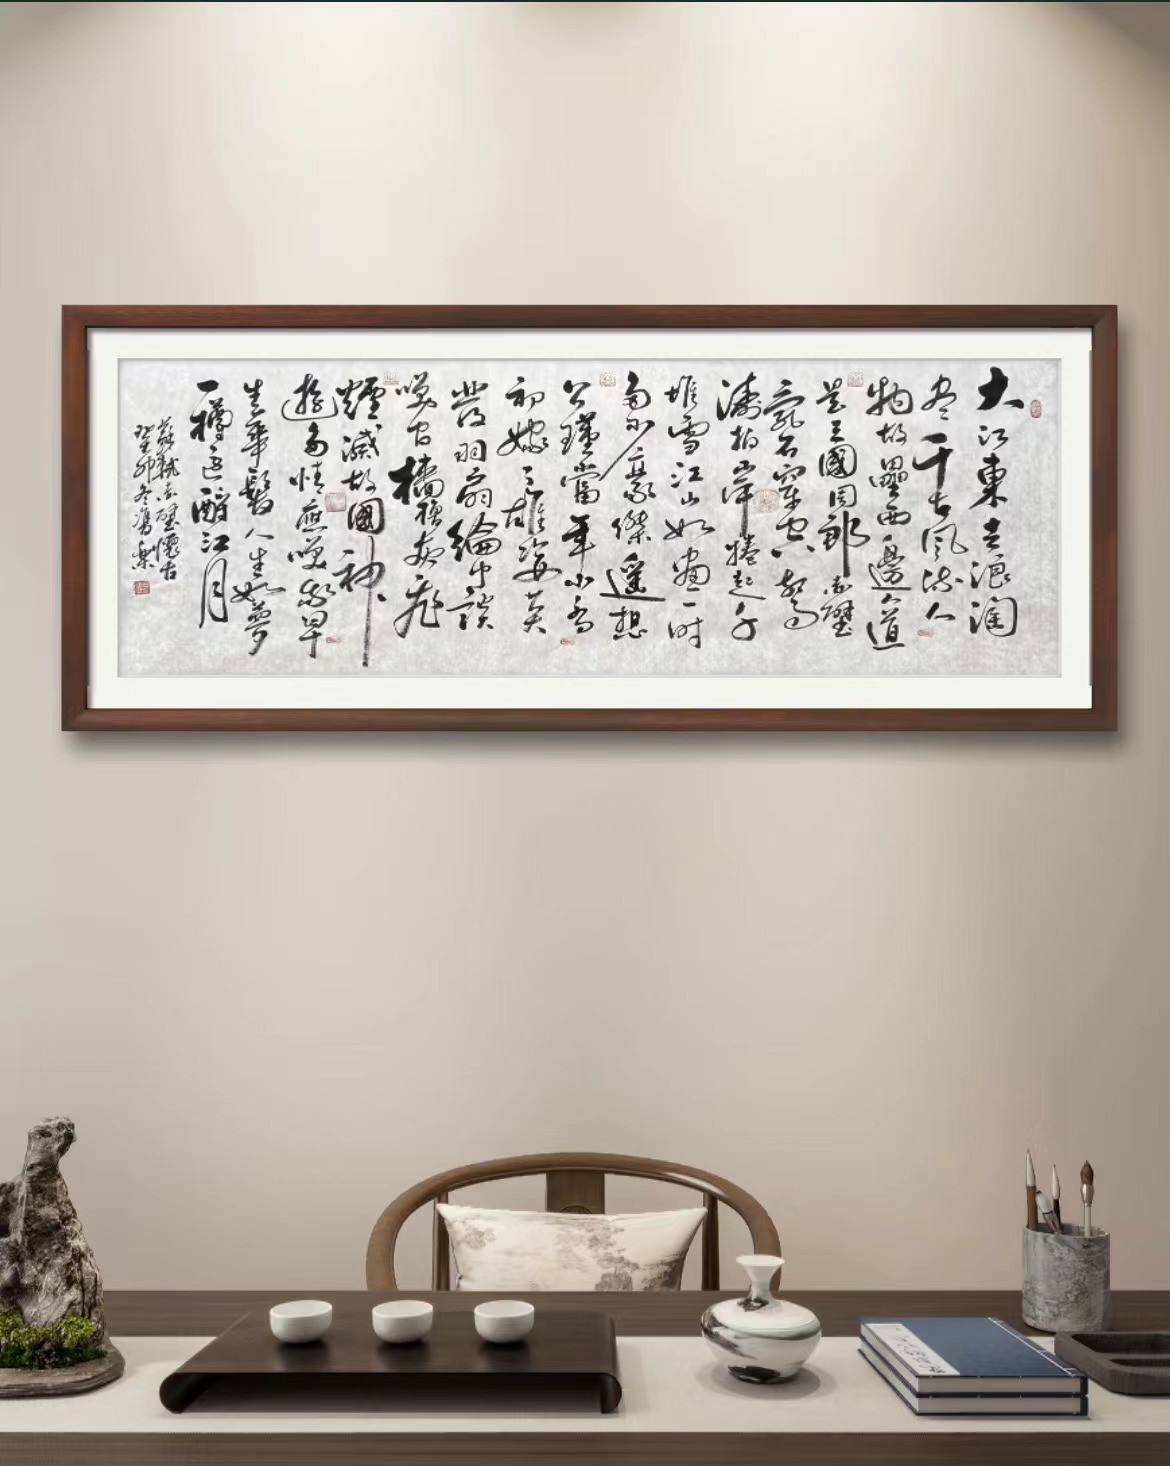 大江東去浪淘
尽千古風流人
物故壘西邊人道
是三國周郎赤壁
亂石穿空驚
濤拍岸捲起千
堆雪江山如畫一時
多少豪傑遙想
公瑾當年小喬
初嫁了雄姿英
發羽扇綸巾談
笑間檣櫓灰飛
煙滅故國神
遊多情應笑我早
生華髮人生如夢
一樽還酹江月
蘇軾赤壁懷古
癸卯冬